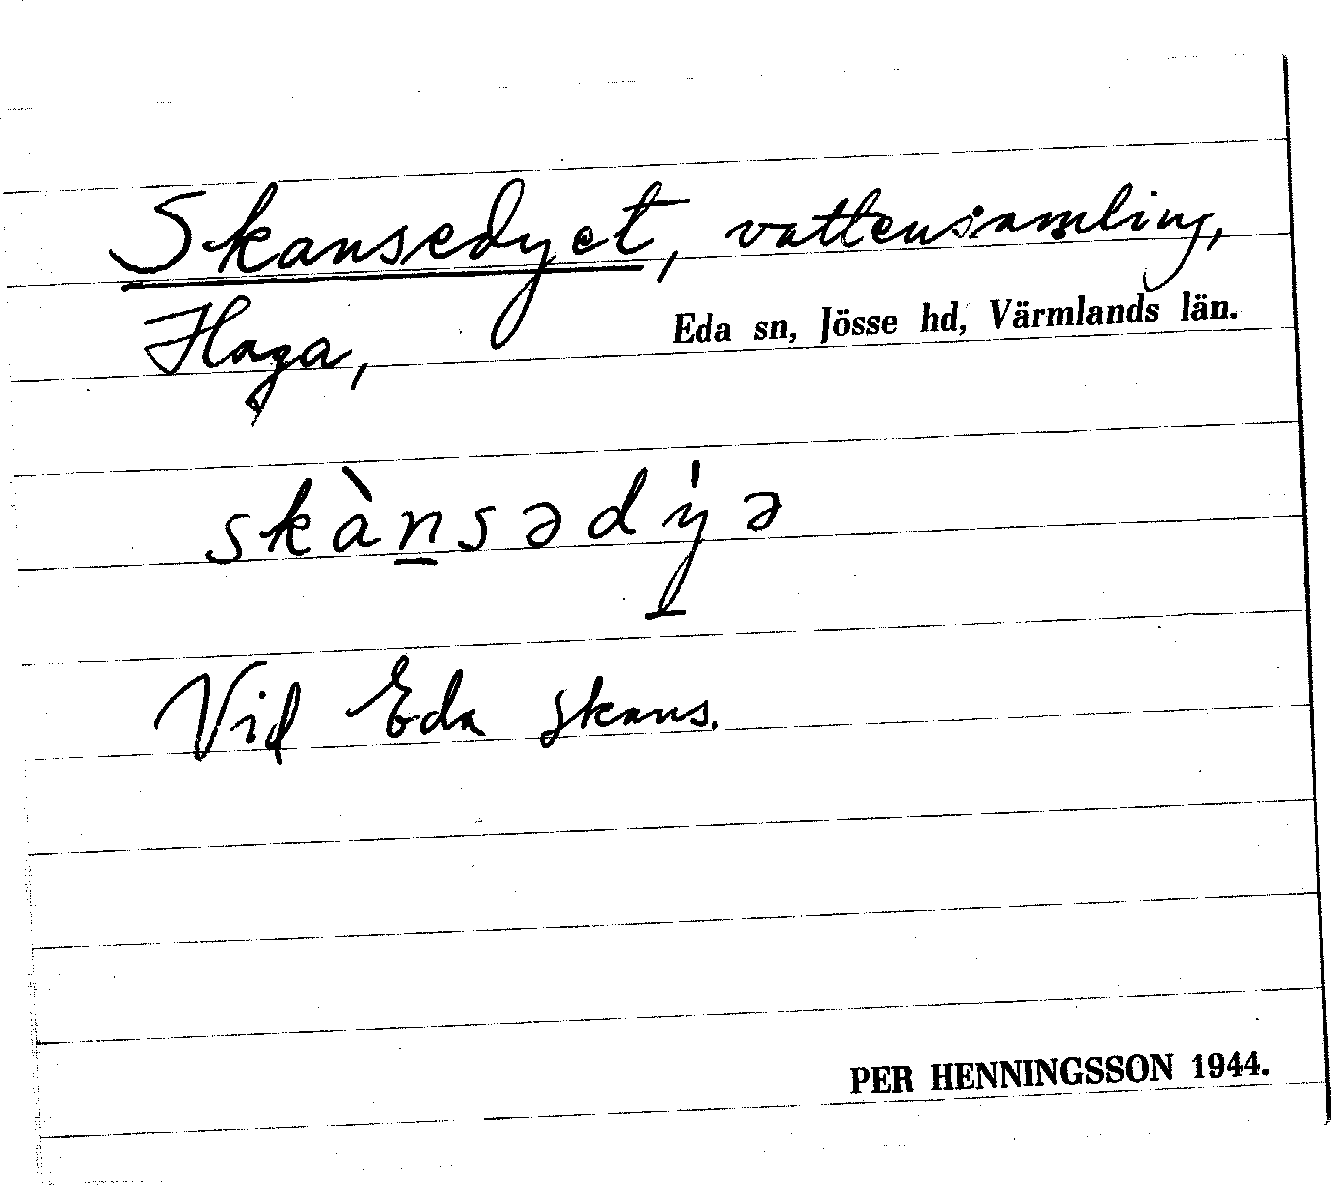 Skansedyet, vattensamling,
Haga, Eda sn, Jösse hd, Värmlands län.
skàn̲sədy̲̍ə
Vid Eda skans.
PER HENNINGSSON 1944.